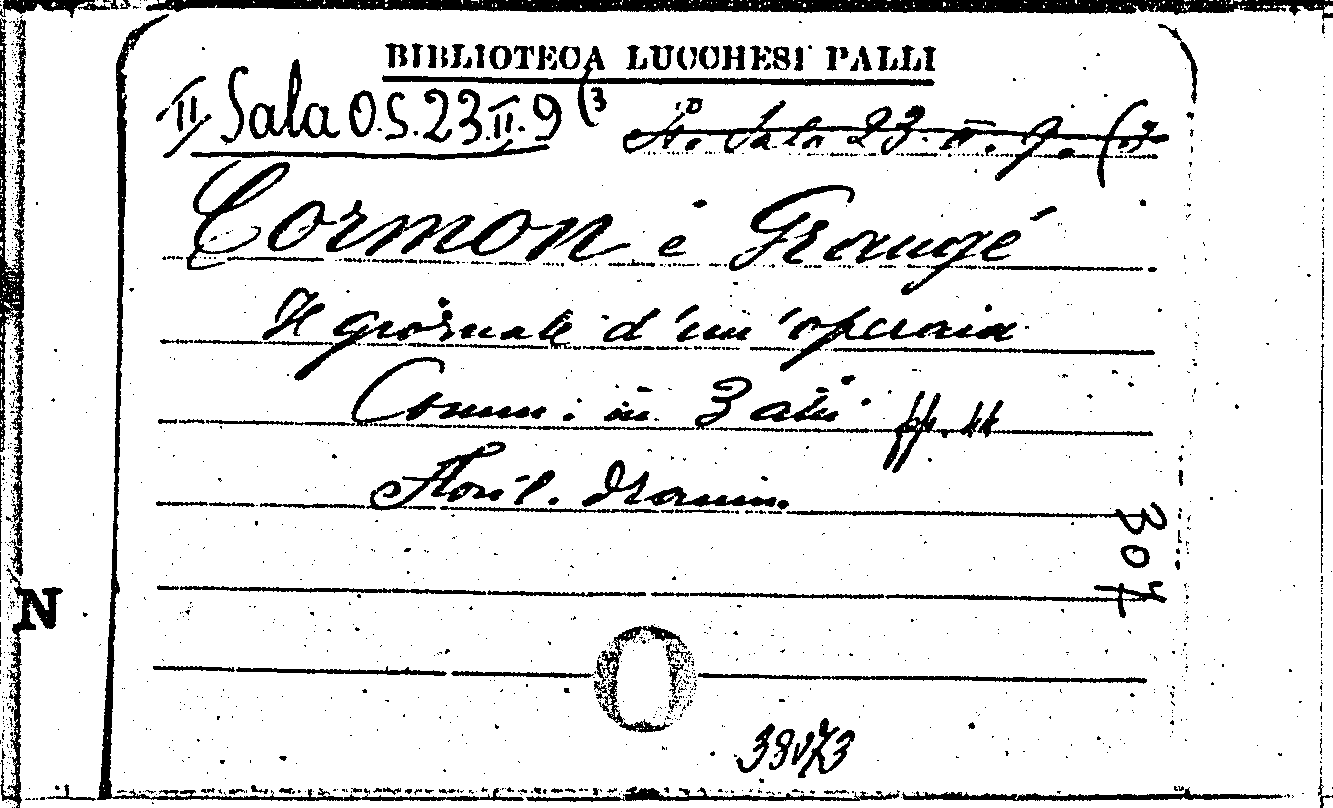 BIBLIOTECA LUCCHESI PALLI
II Sala O.S. 23.II.9(3
II. Sala 23. II. 9. (3
Cormon e Grangé
Il giornale d'un'operaia
Comm: in 3 atti pp. 44
Floril. dramm.
307
N